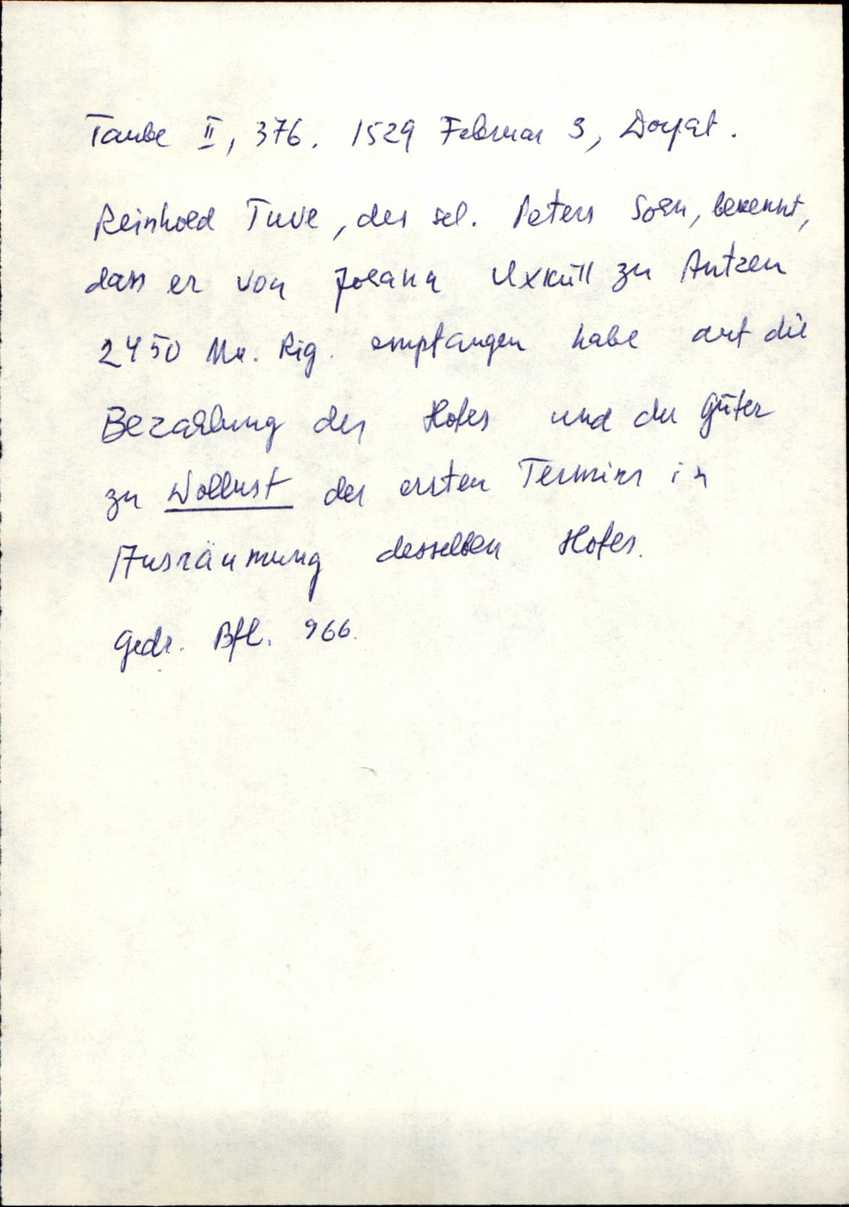 Taube II, 376. 1529 Februar 3, Dorpat.
Reinhold Tuve, des sel. Peters Sohn, bekennt,
dass er von Johann Uxküll zu Antzen
2450 Mk. Rig. empfangen habe auf die
Bezahlung des Hofes und der Güter
zu Wollust des ersten Termins in
Ausräumung desselben Hofes.
gedr. Bfl. 966.